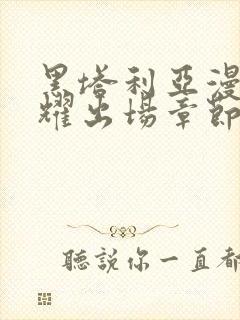 黑塔利亞漫
耀出場章節
聽說你一直都